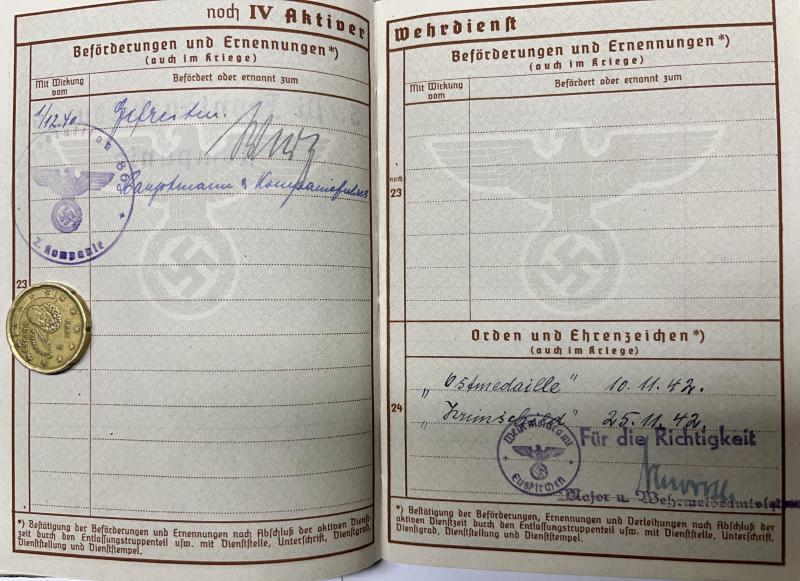 noch IV Aktiver
Beförderungen und Ernennungen*)
(auch im Kriege)
Mit Wirkung vom
Befördert oder ernannt zum
1/12.40 Gefreiten.
Hauptmann u Kompanieführer
2. Kompanie
23
*) Bestätigung der Beförderungen und Ernennungen nach Abschluß der aktiven Dienst-
zeit durch den Entlassungstruppenteil usw. mit Dienststelle, Unterschrift, Dienstgrad,
Dienststellung und Dienststempel.
Wehrdienst
Beförderungen und Ernennungen*)
(auch im Kriege)
Mit Wirkung vom
Befördert oder ernannt zum
noch
23
Orden und Ehrenzeichen*)
(auch im Kriege)
"Ostmedaille" 10.11.42.
24
"Krimschild" 25.11.42.
Wehrmeldeamt
Euskirchen
Für die Richtigkeit
Major u. Wehrmeldeamtsleiter
*) Bestätigung der Beförderungen, Ernennungen und Verleihungen nach Abschluß der
aktiven Dienstzeit durch den Entlassungstruppenteil usw. mit Dienststelle, Unterschrift,
Dienstgrad, Dienststellung und Dienststempel.